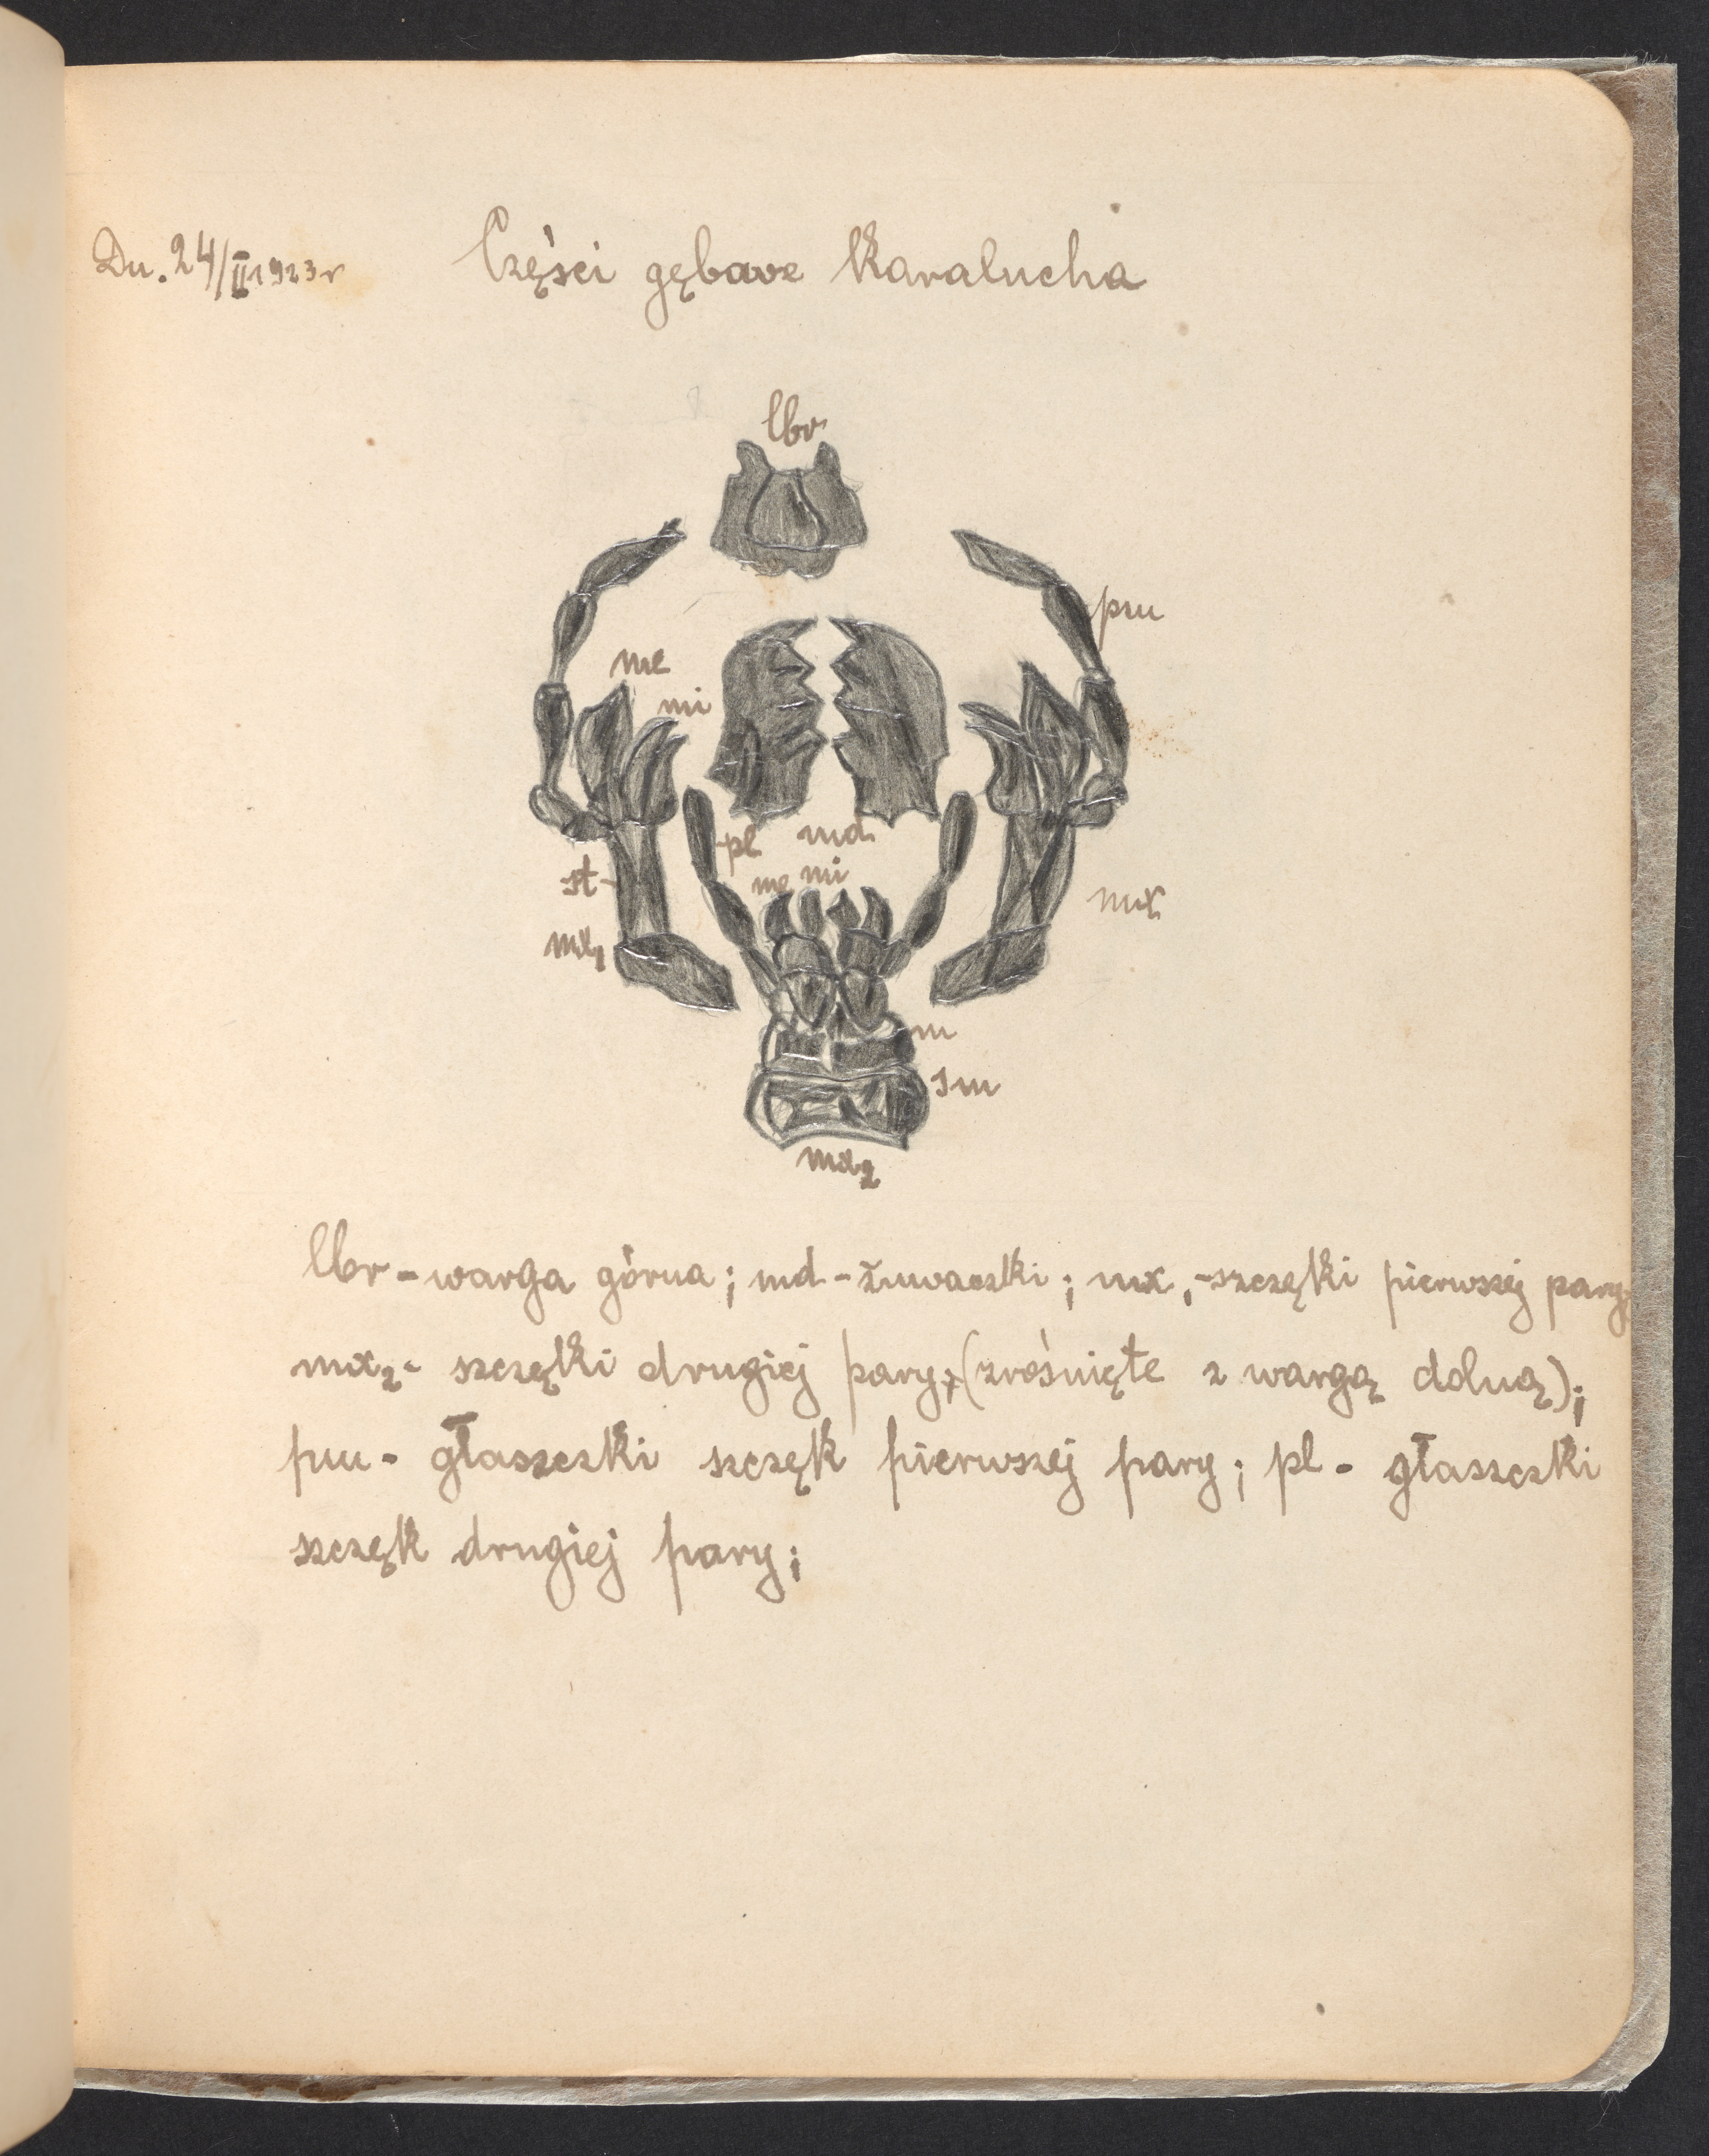 Dn. 24/II 1923r
Części gębowe Karalucha
lbr
pm
me
mi
pl md
me mi
st
mx
mx1
m
sm
mx2
lbr - warga górna; md - żuwaczki; mx1 - szczęki pierwszej pary;
mx2 - szczęki drugiej pary; (zrośnięte z wargą dolną);
pm - głaszczki szczęk pierwszej pary; pl - głaszczki
szczęk drugiej pary;